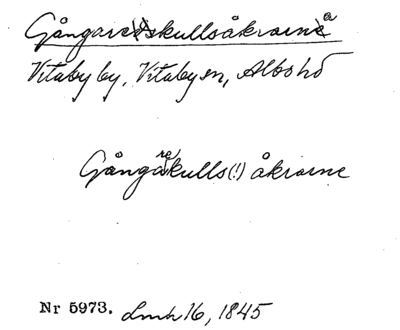 Gångareskullsåkrarna
Vitaby by, Vitaby sn, Albo hd
Gångarekulls(!) åkrarne
Nr 5973. Lmh 16, 1845